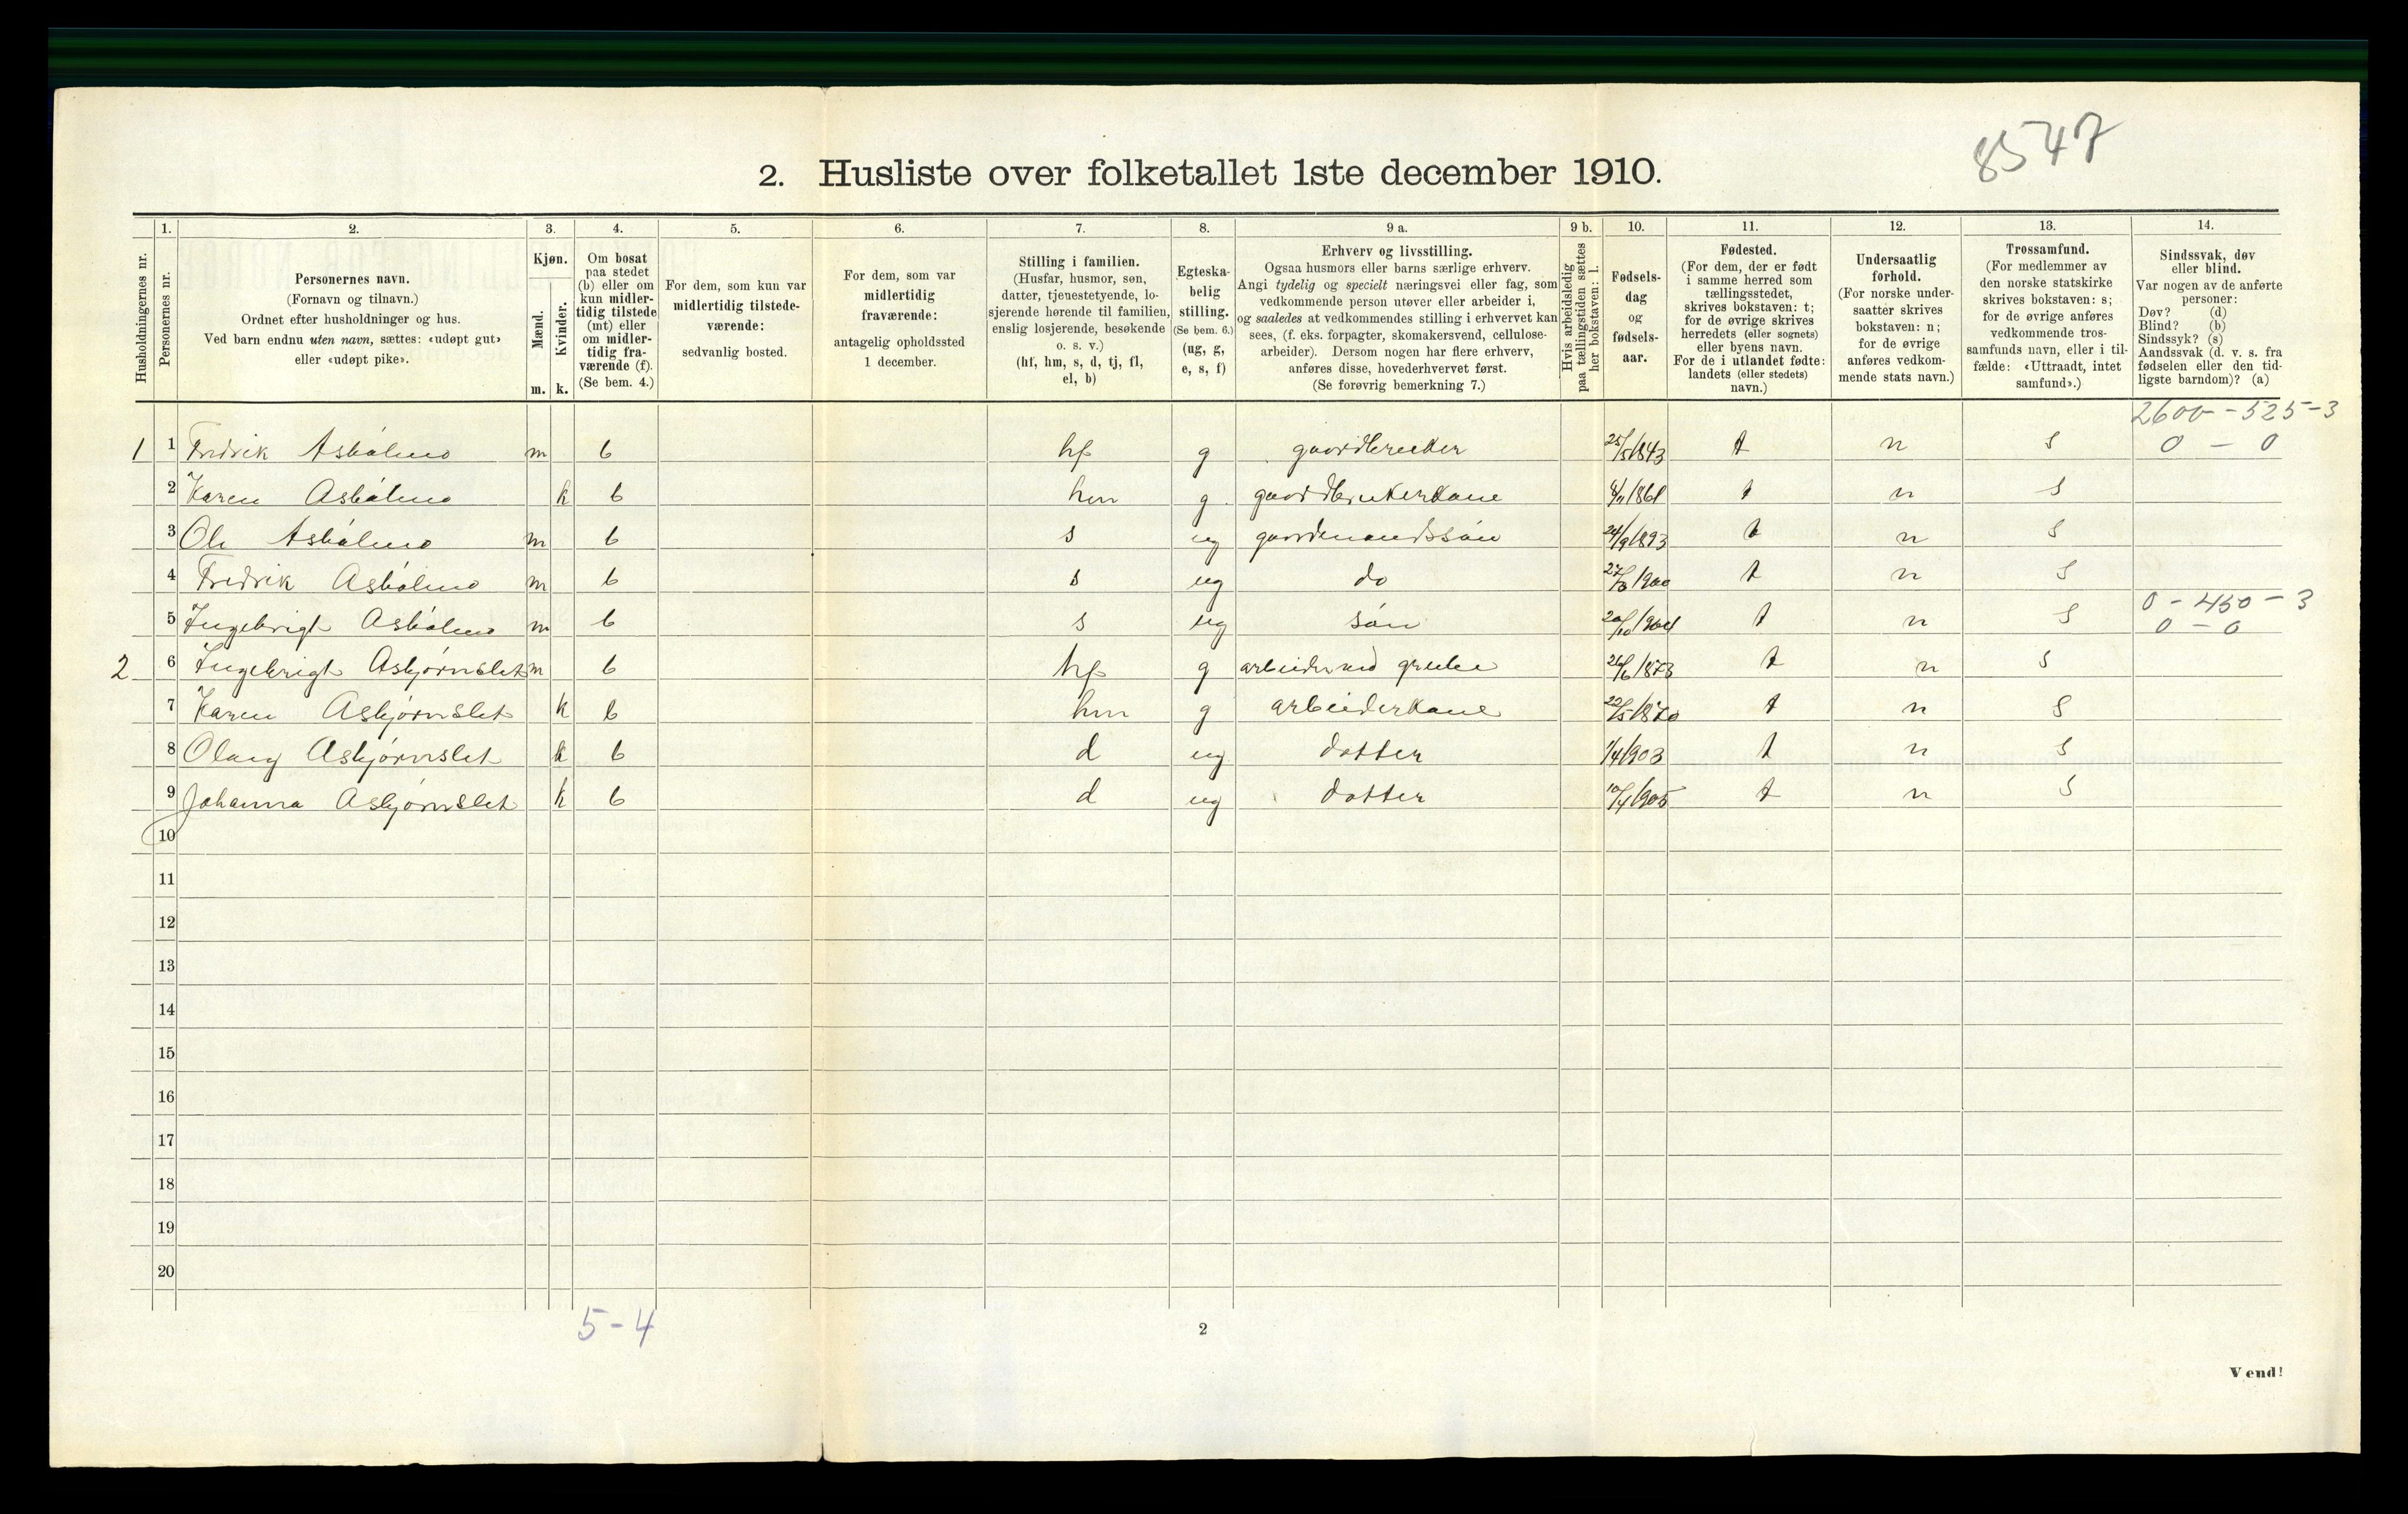 8547
2. Husliste over folketallet 1ste december 1910.
Husholdningernes nr.
1.
Personernes nr.
2.
Personernes navn.
(Fornavn og tilnavn.)
Ordnet efter husholdninger og hus.
Ved barn endnu uten navn, sættes: «udøpt gut»
eller «udøpt pike».
3.
Kjøn.
Mænd.
Kvinder.
m. k.
4.
Om bosat
paa stedet
(b) eller om
kun midler-
tidig tilstede
(mt) eller
om midler-
tidig fra-
værende (f).
(Se bem. 4.)
5.
For dem, som kun var
midlertidig tilstede-
værende:
sedvanlig bosted.
6.
For dem, som var
midlertidig
fraværende:
antagelig opholdssted
1 december.
7.
Stilling i familien.
(Husfar, husmor, søn,
datter, tjenestetyende, lo-
sjerende hørende til familien,
enslig losjerende, besøkende
o. s. v.)
(hf, hm, s, d, tj, fl,
el, b)
8.
Egteska-
belig
stilling.
(Se bem. 6.)
(ug, g,
e, s, f)
9 a.
Erhverv og livsstilling.
Ogsaa husmors eller barns særlige erhverv.
Angi tydelig og specielt næringsvei eller fag, som
vedkommende person utøver eller arbeider i,
og saaledes at vedkommendes stilling i erhvervet kan
sees, (f. eks. forpagter, skomakersvend, cellulose-
arbeider). Dersom nogen har flere erhverv,
anføres disse, hovederhvervet først.
(Se forøvrig bemerkning 7.)
9 b.
Hvis arbeidsledig
paa tællingstiden sættes
her bokstaven: l.
10.
Fødsels-
dag
og
fødsels-
aar.
11.
Fødested.
(For dem, der er født
i samme herred som
tællingsstedet,
skrives bokstaven: t;
for de øvrige skrives
herredets (eller sognets)
eller byens navn.
For de i utlandet fødte:
landets (eller stedets)
navn.)
12.
Undersaatlig
forhold.
(For norske under-
saatter skrives
bokstaven: n;
for de øvrige
anføres vedkom-
mende stats navn.)
13.
Trossamfund.
(For medlemmer av
den norske statskirke
skrives bokstaven: s;
for de øvrige anføres
vedkommende tros-
samfunds navn, eller i til-
fælde: «Uttraadt, intet
samfund».)
14.
Sindssvak, døv
eller blind.
Var nogen av de anførte
personer:
Døv? (d)
Blind? (b)
Sindssyk? (s)
Aandssvak (d. v. s. fra
fødselen eller den tid-
ligste barndom)? (a)
2600-525-3
1 1 Fredrik Asbólmo m b hf g gaardbruker 25/5 1843 t n s 0 - 0
2 Karen Asbólmo k b hm g gaardbrukerkone t n s
3 Ole Asbólmo m b s ug gaardmandssón 24/9 1893 t n s
4 Fredrik Asbólmo m b s ug do t n s
0-450-3
5 Ingebrigt Asbólmo m b s ug són t n s 0 - 0
2 6 Ingebrigt Asbjørnslet m b hf g arbeider ved grube 26/6 1873 t n s
7 Karen Asbjørnslet k b hm g arbeiderkone 22/5 1870 t n s
8 Olaug Asbjørnslet k b d ug datter 1/4 1903 t n s
9 Johanna Asbjørnslet k b d ug datter 10/4 1905 t n s
10
11
12
13
14
15
16
17
18
19
20
5-4
2
Vend!